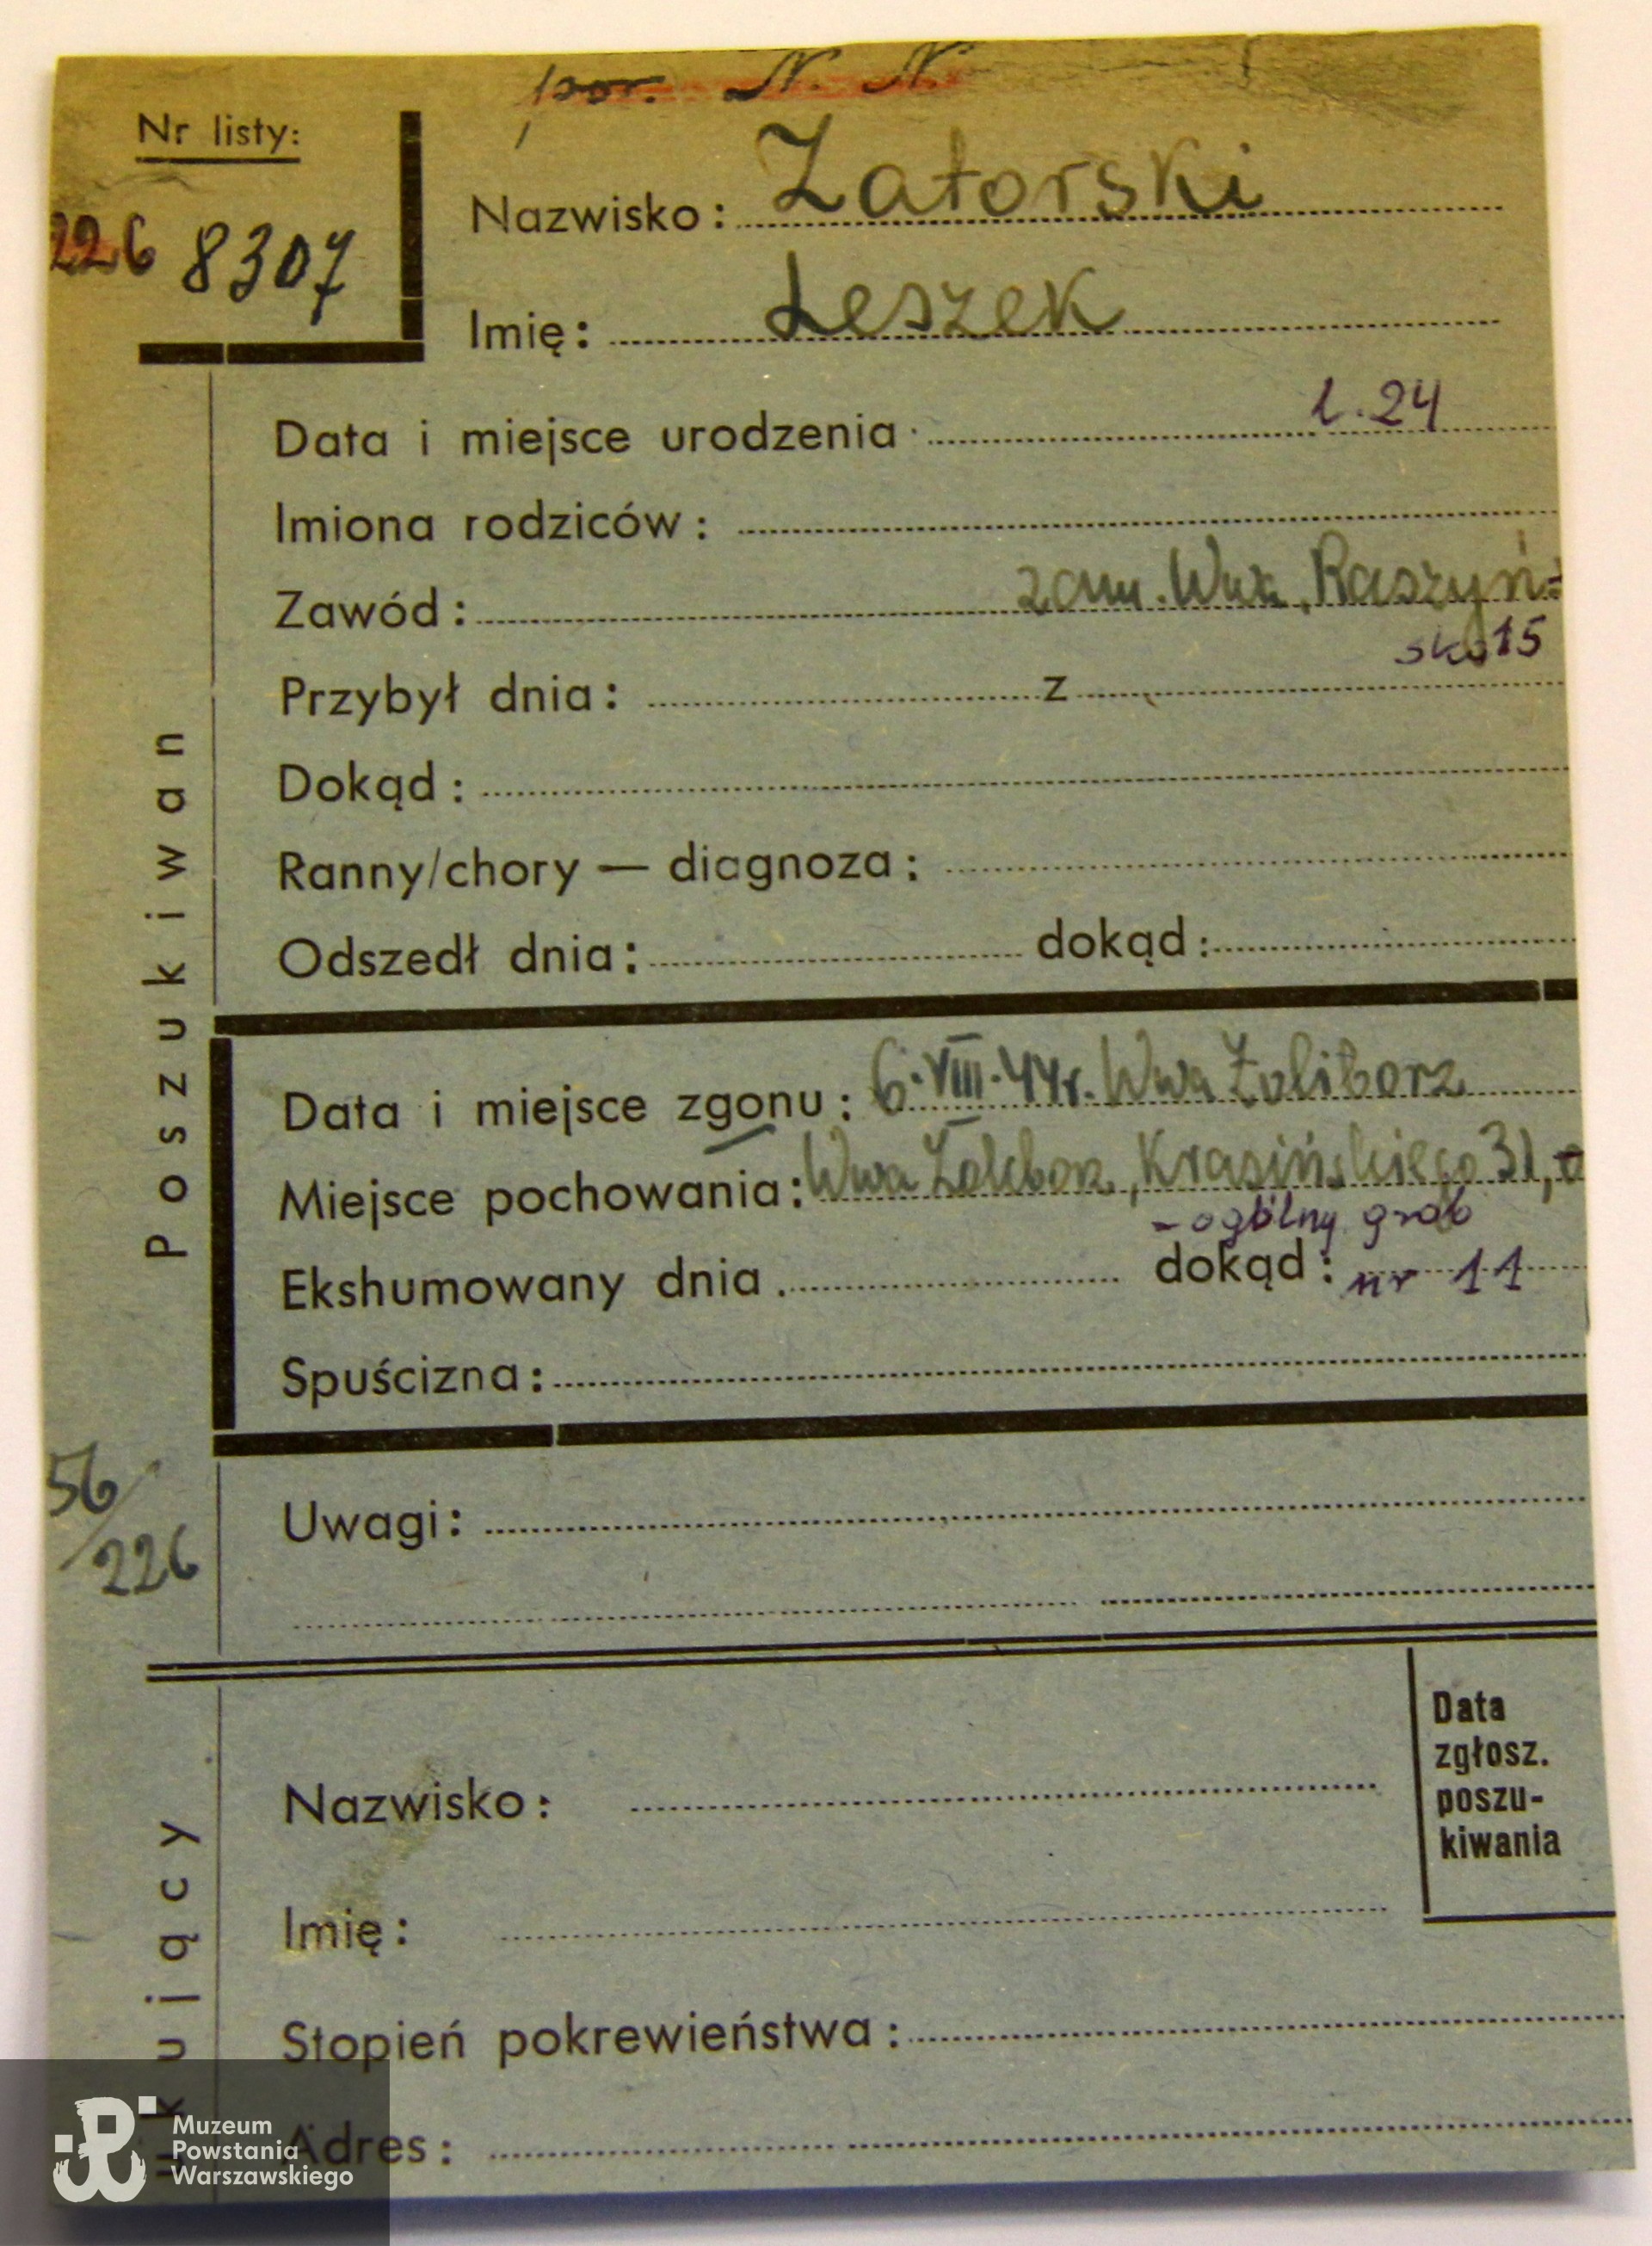 por. N. N.
Nr listy:
226 8307
Nazwisko: Zatorski
Imię: Leszek
Data i miejsce urodzenia l. 24
Imiona rodziców:
Zawód: zam. Wwa, Raszyń=
ska 15
Przybył dnia: z
Dokąd:
Ranny/chory — diagnoza:
Odszedł dnia: dokąd:
Poszukiwan
Data i miejsce zgonu: 6.VIII.44r. Wwa Żoliborz
Miejsce pochowania: Wwa Żoliborz, Krasińskiego 31,
- ogólny grob
Ekshumowany dnia. dokąd: nr 11
Spuścizna:
56/226
Uwagi:
Data
zgłosz.
poszu-
kiwania
Nazwisko:
Imię:
Stopień pokrewieństwa:
Adres:
ukujący
Muzeum
Powstania
Warszawskiego